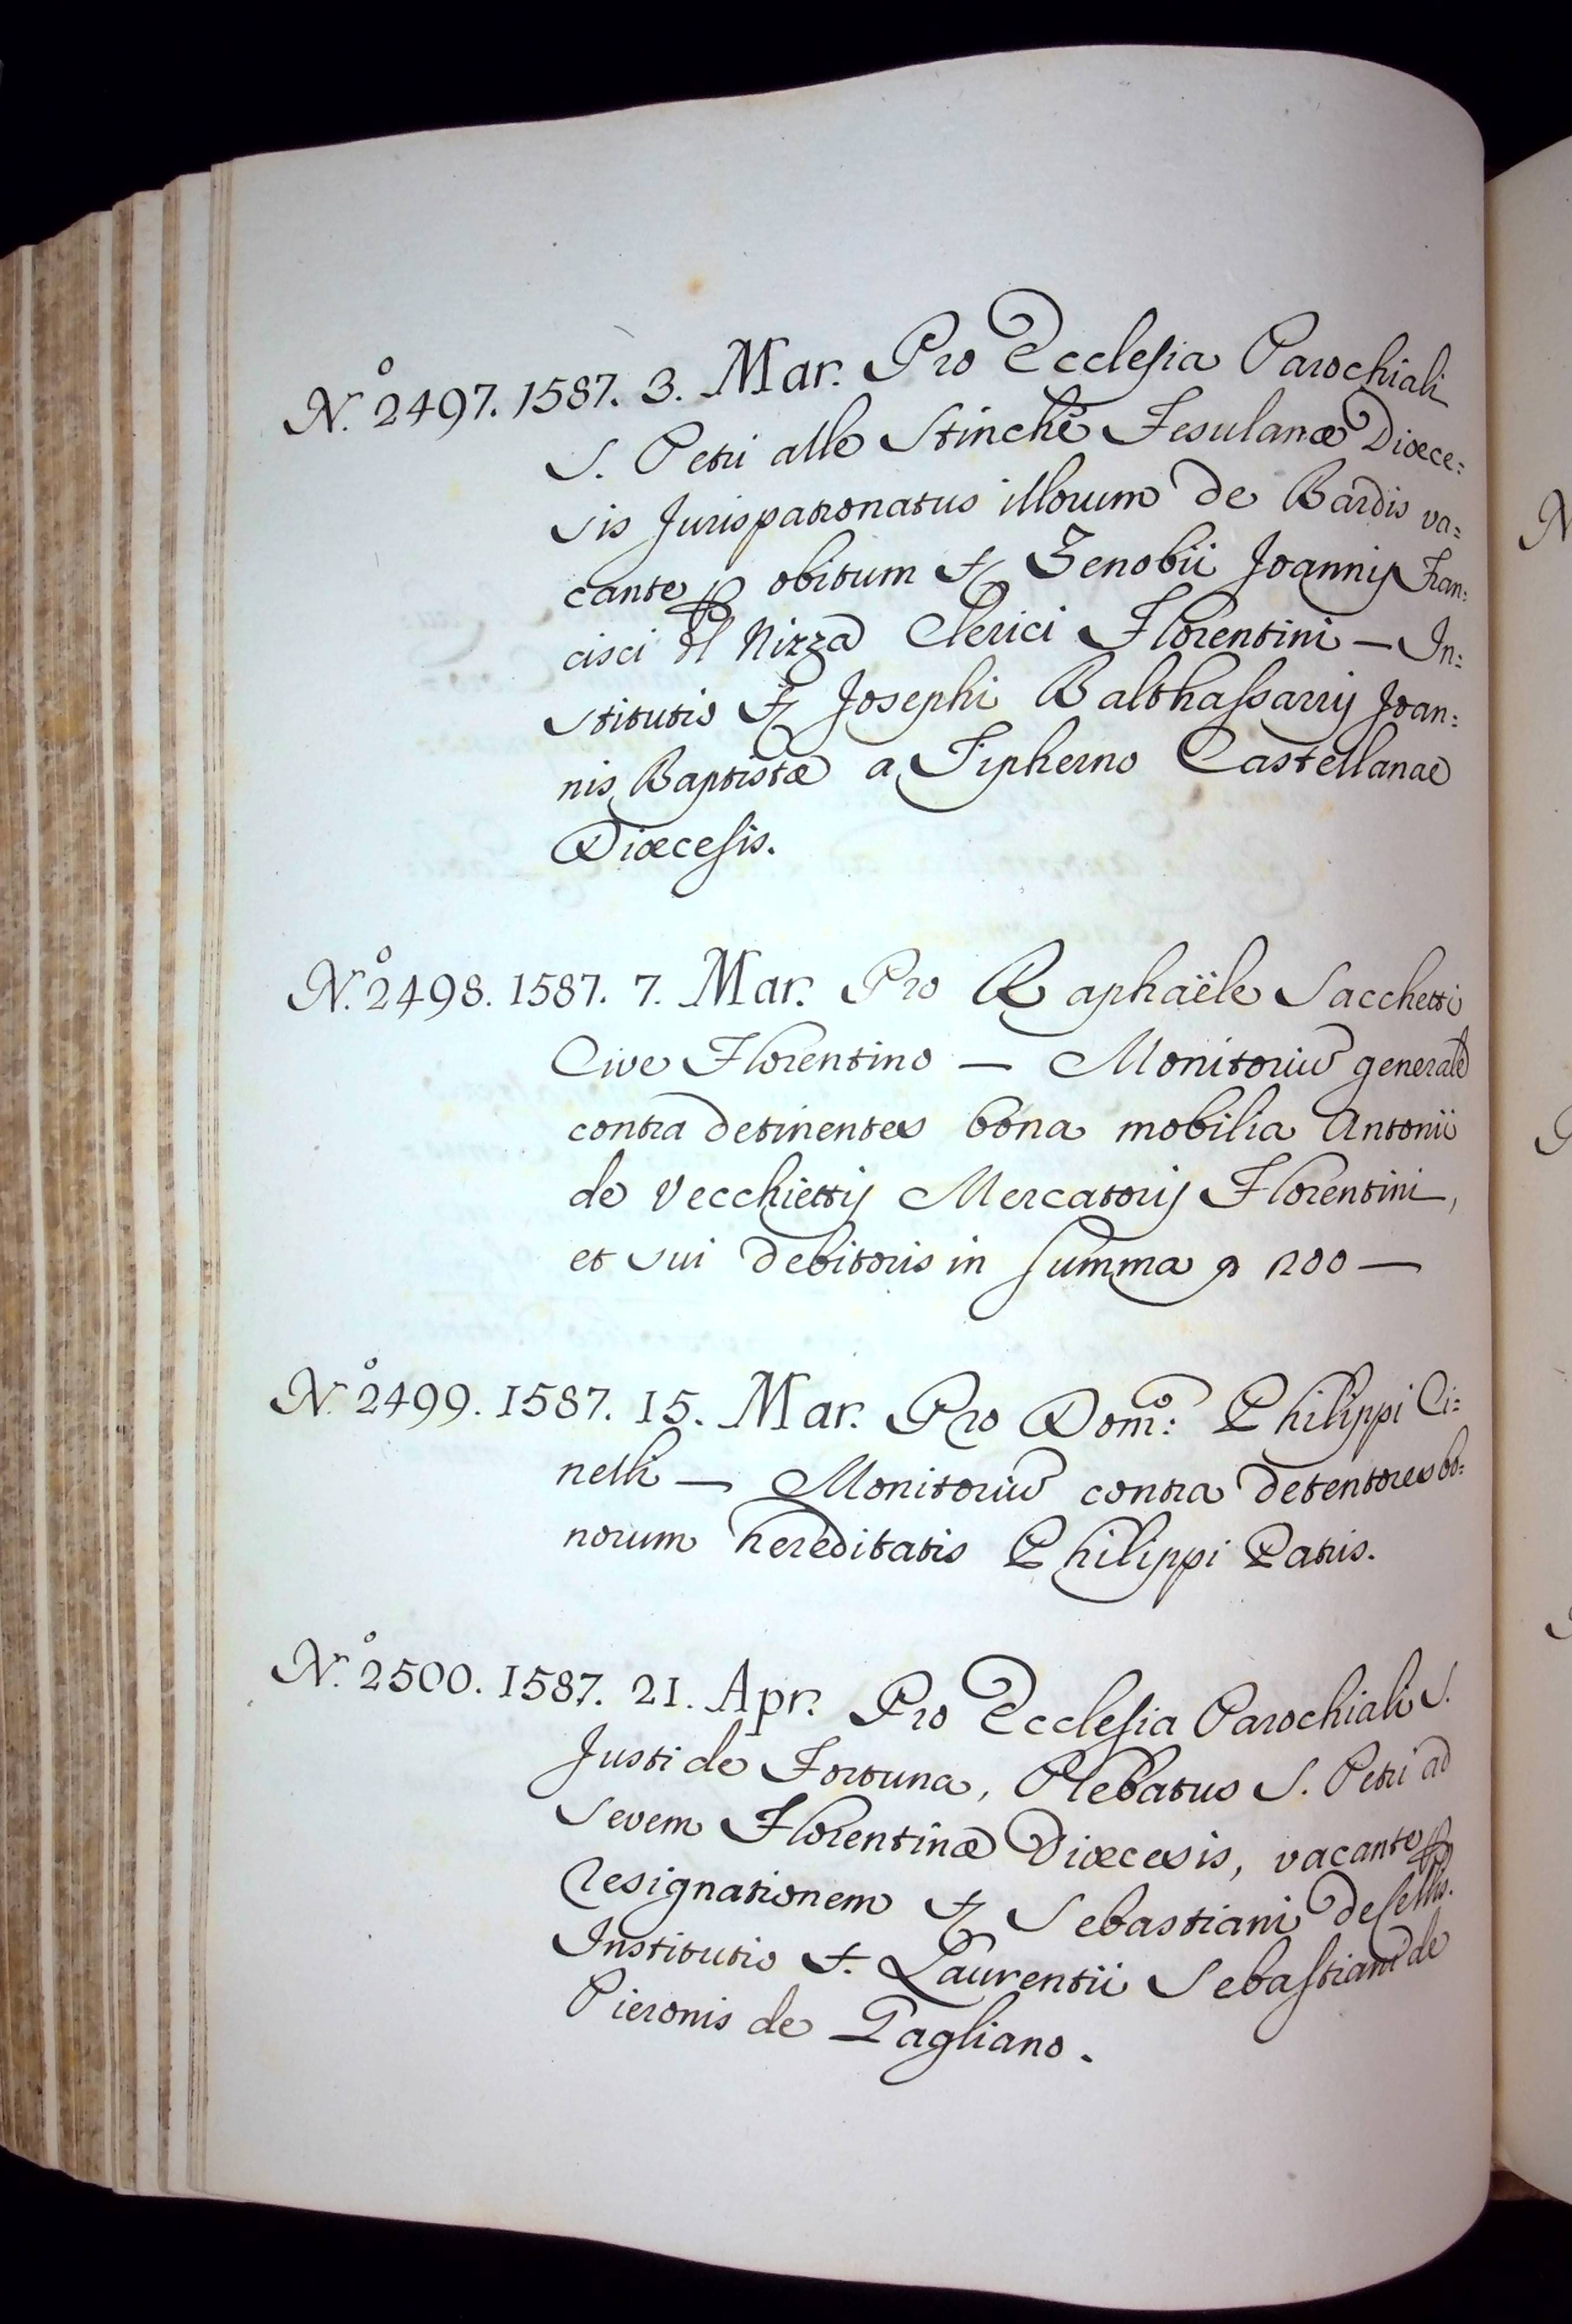 N.º 2497. 1587. 3. Mar. Pro Ecclesia Parochiali
S. Petri alle Stinche Fesulanæ Diœce=
sis Jurispatronatus illorum de Bardis va=
cante obitum Zenobii Joannis Fran=
cisci Nizza Clerici Florentini — In=
stitutio Josephi Balthassarris Joan=
nis Baptistæ a Tipherno Castellanae
Diœcesis.
N.º 2498. 1587. 7. Mar. Pro Raphaële Sacchetti
Cive Florentino — Monitoriũ generale
contra detinentes bona mobilia Antonii
de Vecchiettis Mercatoris Florentini,
et sui debitoris in summa 200 —
N.º 2499. 1587. 15. Mar. Pro Domº: Philippi Ci=
nelli — Monitoriũ contra detentores bo=
norum hereditatis Philippi Patris.
N.º 2500. 1587. 21. Apr. Pro Ecclesia Parochiali S.
Justi de Fortuna, Plebatus S. Petri ad
Sevem Florentinæ Diœcesis, vacante
resignationem Sebastiani de
Institutio Laurentii Sebastiani de
Pieronis de Gagliano.